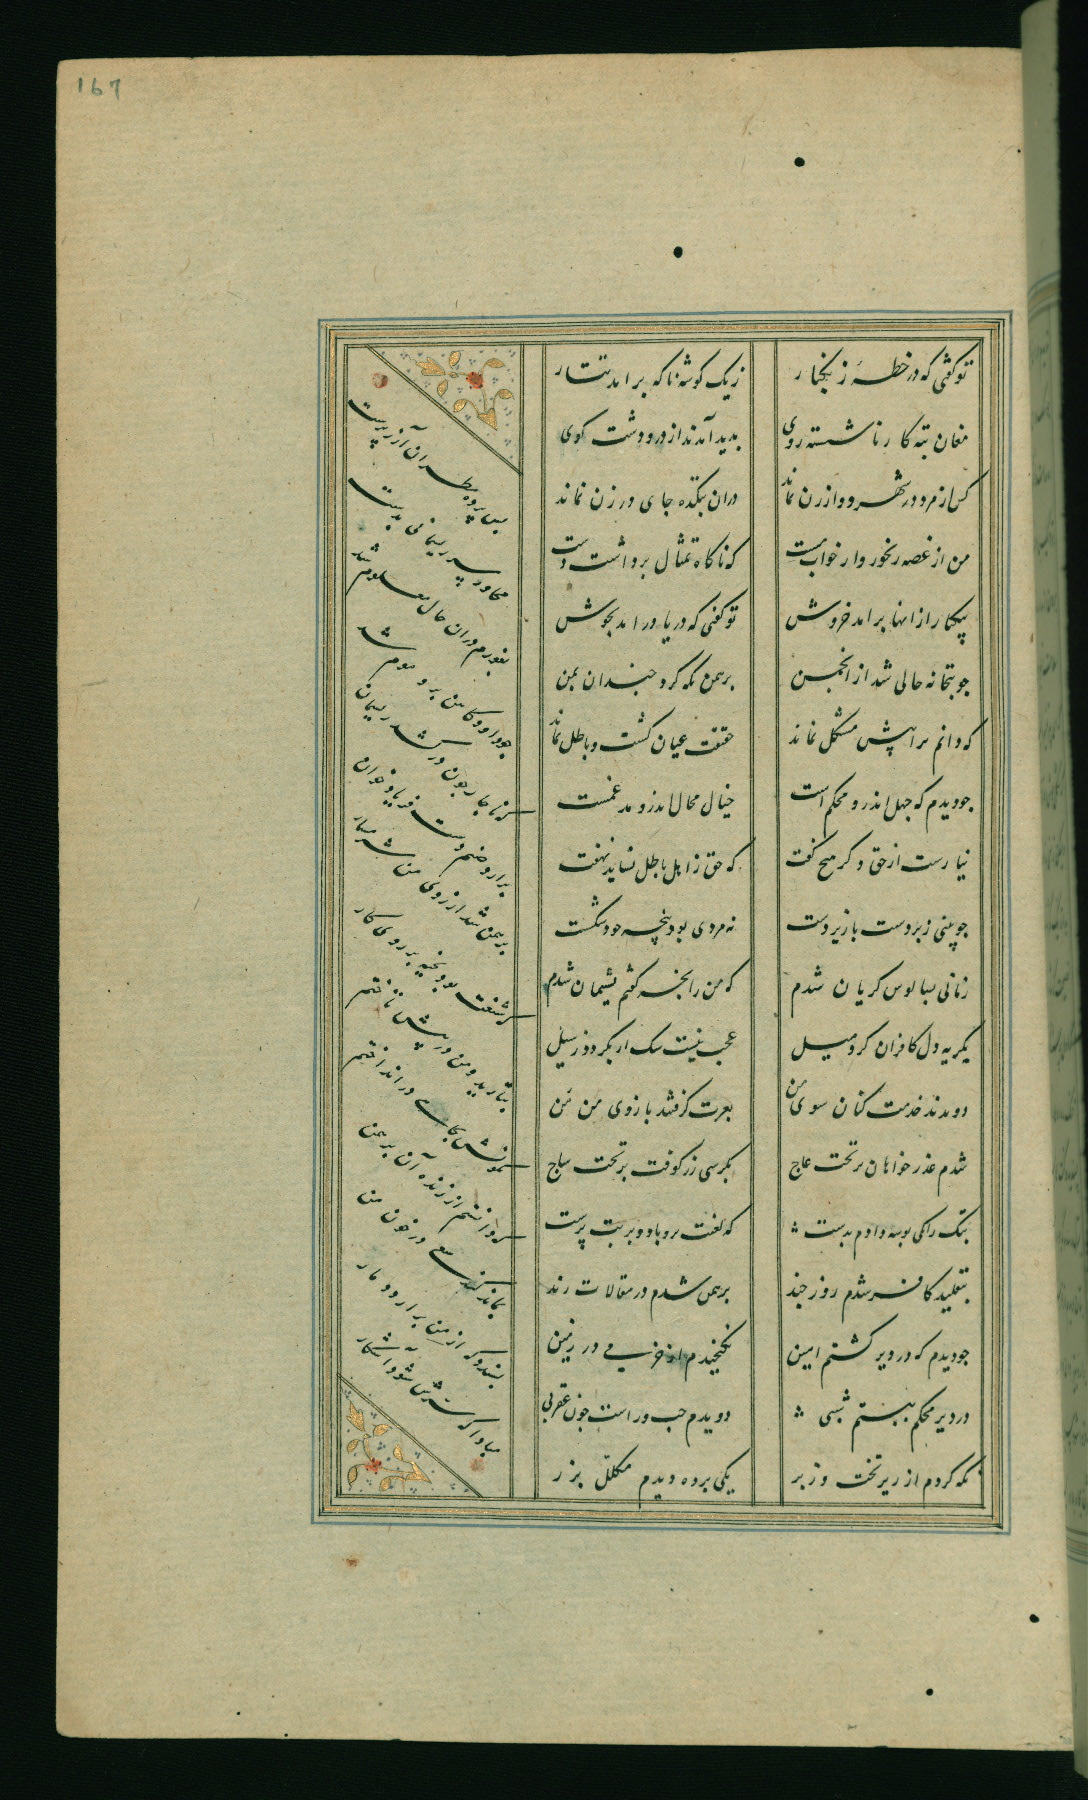 167
تو گفتی که در خطه زنگبار
ز یک گوشه ناگه برآمد تتار
مغان تبه کار ناشسته روی
بدید آمدند از در و دشت کوی
کس از مرد در شهر و از زن نماند
در آن بتکده جای درزن نماند
من از غصه رنجور و از خواب مست
که ناگاه تمثال برداشت دست
بیکبار از اینها برآمد خروش
تو گفتی که دریا درآمد بجوش
چو بتخانه خالی شد از انجمن
برهمن نگه کرد خندان بمن
که دانم ترا پیش مشکل نماند
حقیقت عیان گشت و باطل نماند
چو دیدم که جهل اندرو محکم است
خیال محال اندرو مدغمست
نیارستم از حق دگر هیچ گفت
که حق ز اهل باطل بباید نهفت
چو بینی زبردست با زیردست
نه مردی بود پنجه خود شکست
زمانی بسالوس گریان شدم
که من زآنچه گفتم پشیمان شدم
بگریه دل کافران کرد میل
عجب نیست سنگ ار بگردد ز سیل
دویدند خدمت کنان سوی من
بعزت گرفتند بازوی من
شدم عذر خواهان بر تخت عاج
بکرسی زر کوفت بر تخت ساج
بتک را یکی بوسه دادم بدست
که لعنت برو باد و بر بت پرست
بتقلید کافر شدم روز چند
برهمن شدم در مقالات زند
چو دیدم که در دیر گشتم امین
نگنجیدم از خرمی در زمین
در دیر محکم ببستم شبی
دویدم چپ و راست چون عقربی
نگه کردم از زیر تخت و زبر
یکی پرده دیدم مکلل بزر
پس پرده مطران آذرپرست
مجاور سر ریسمانی بدست
بفورم در آن حال معلوم شد
چو داود کآهن برو موم شد
که ناچار چون درکشد ریسمان
برآرد صنم دست فریاد خوان
برهمن شد از روی من شرمسار
که شنعت بود بخیه بر روی کار
بتازید و من در پیش تاختم
نگونش بچاهی در انداختم
که دانستم ار زنده آن برهمن
بماند کند سعی در خون من
پسندد که از من برآرد دمار
مبادا که سرش شود آشکار